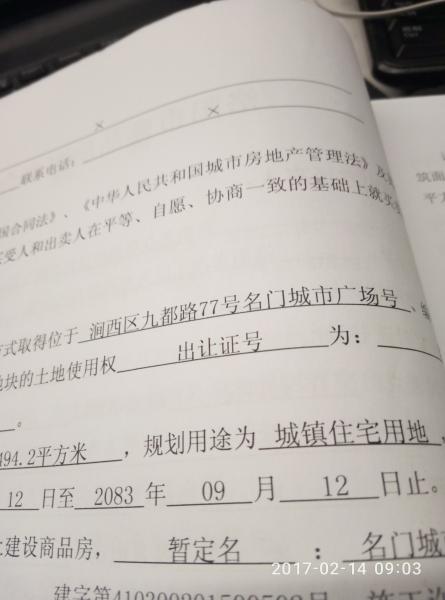 ×
联系电话: ×
国合同法》、《中华人民共和国城市房地产管理法》及
买受人和出卖人在平等、自愿、协商一致的基础上就买
筑面
平方
方式取得位于 涧西区九都路77号名门城市广场号 、编
地块的土地使用权 出让证号 为:
。
494.2平方米 ,规划用途为 城镇住宅用地 ,
12 日至 2083 年 09 月 12 日止。
建设商品房, 暂定名 : 名门城
建字第410300201500503号
2017-02-14 09:03